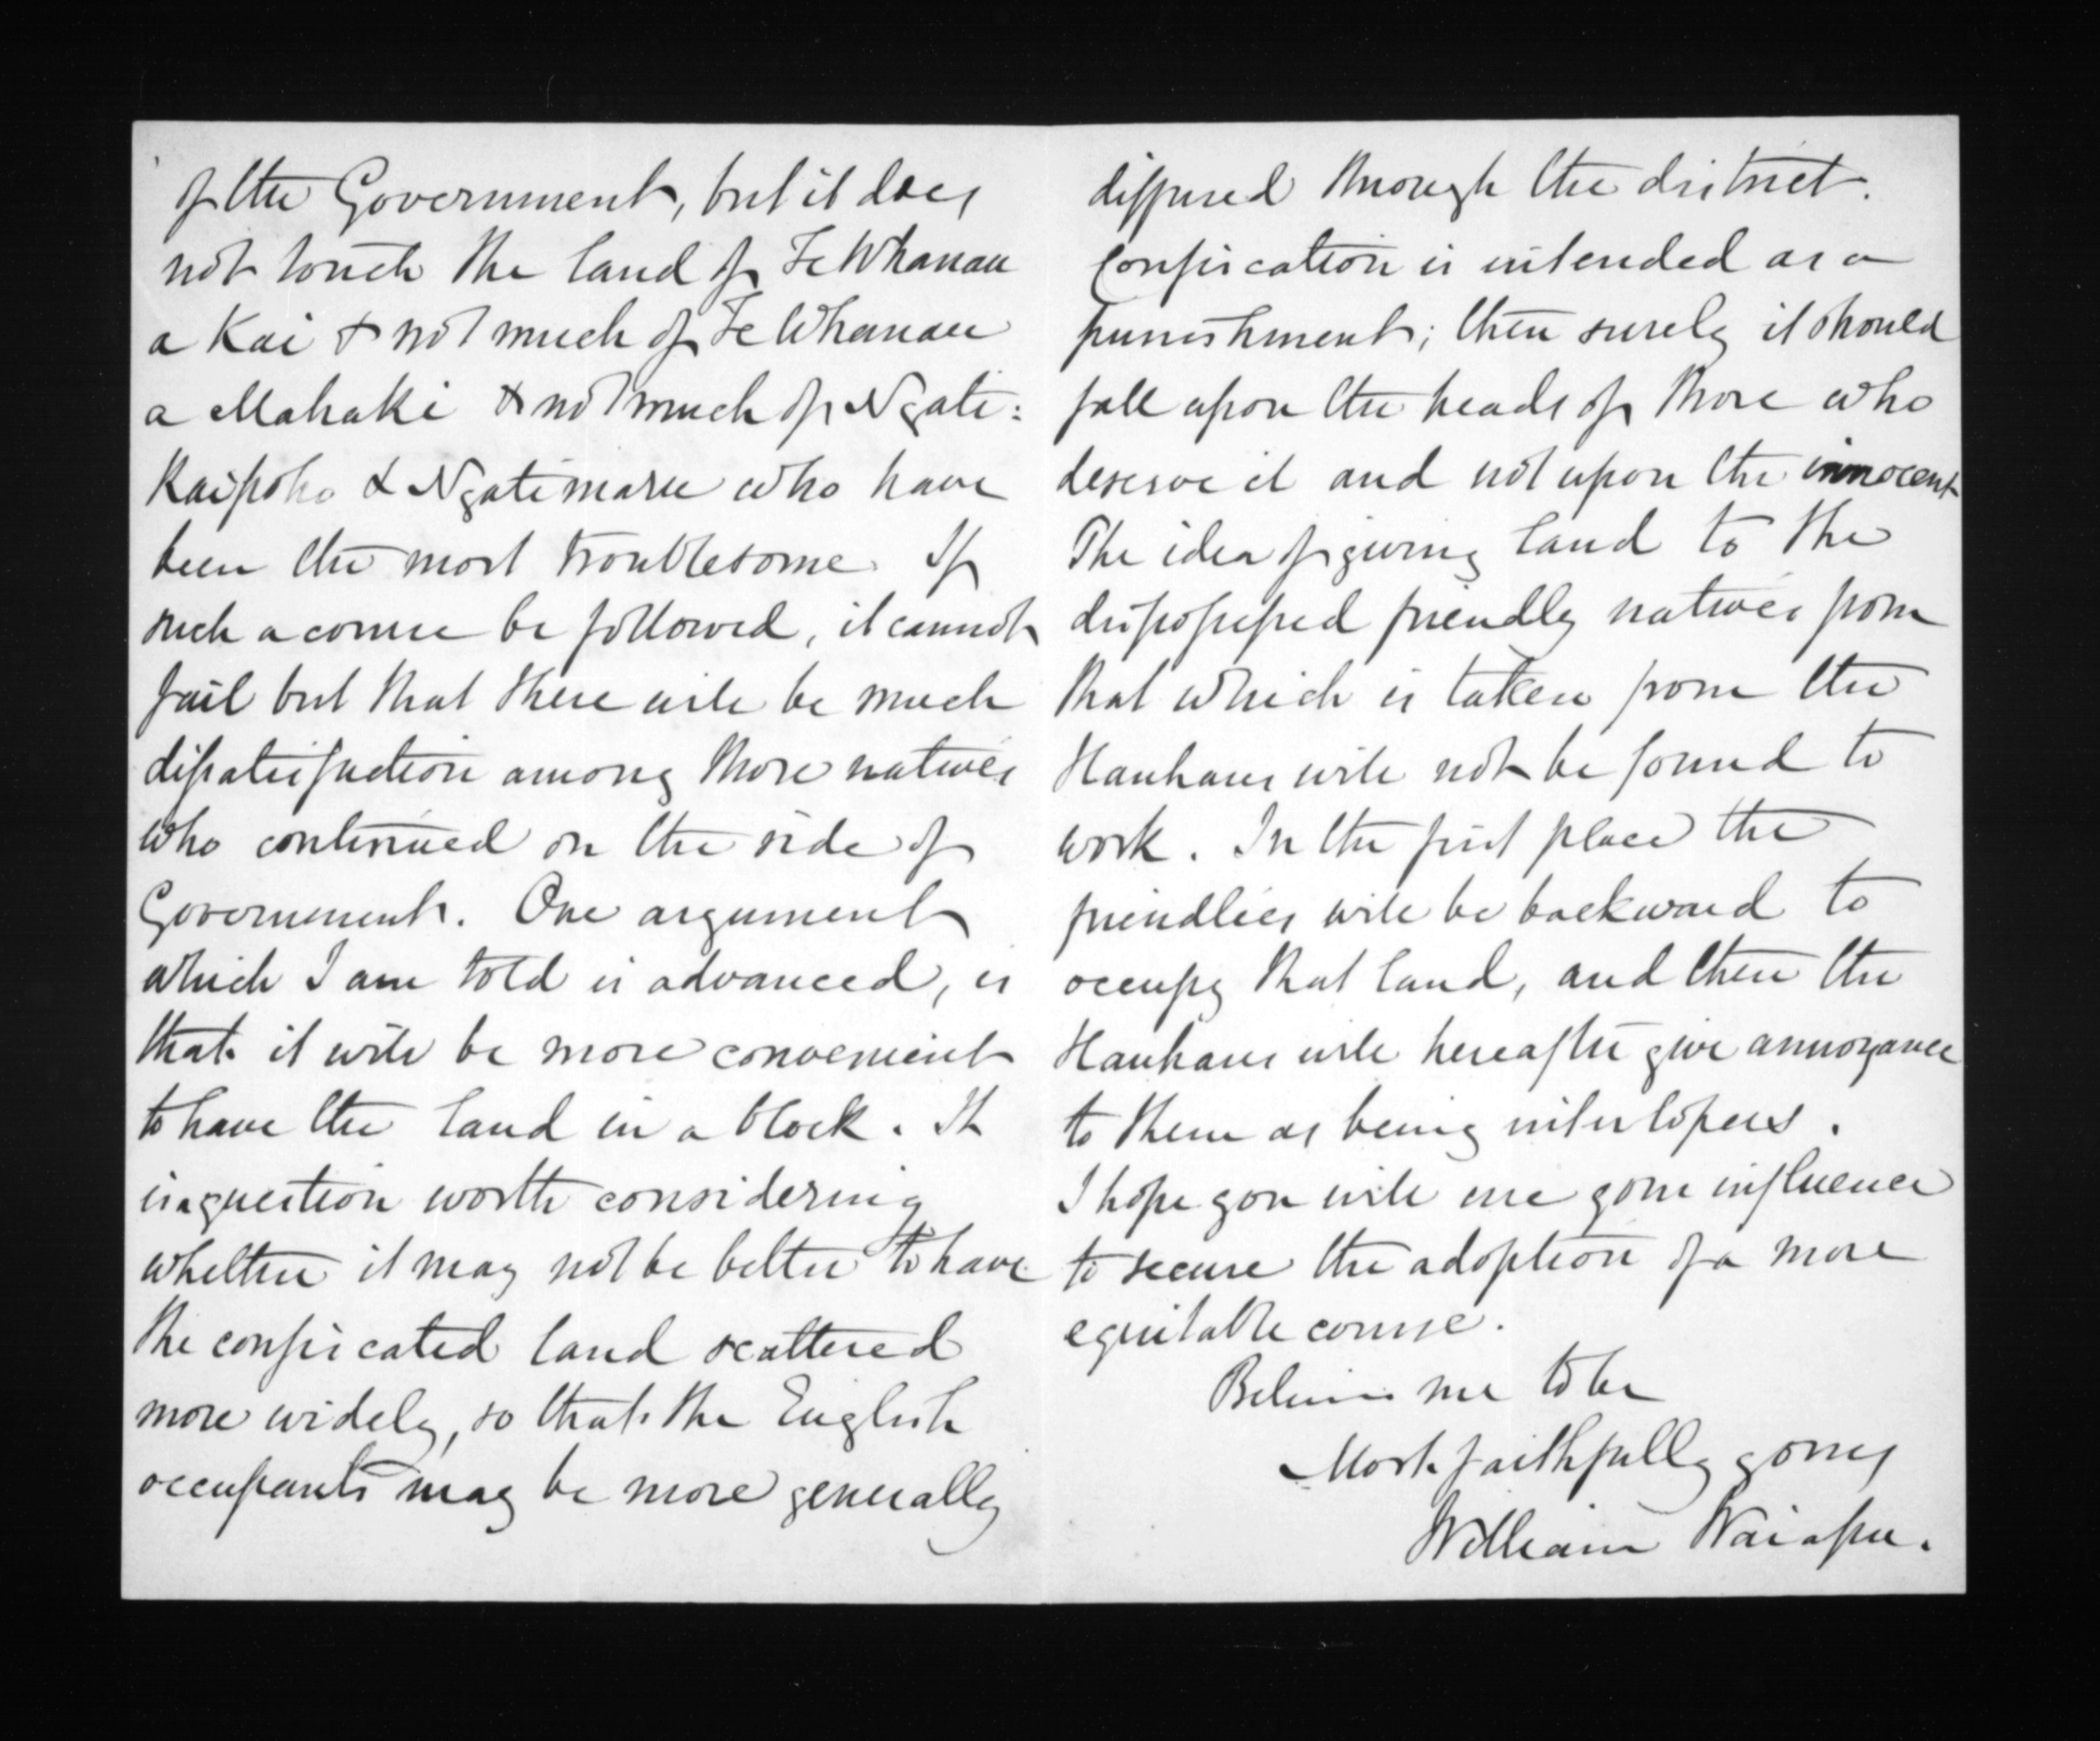 of the Government, but it does
not touch the land of Te Whanau
a Kai & not much of Te Whanau
a Mahaki & not much of Ngati=
Kaipoho & Ngatimaru who have
been the most troublesome. If
such a course be followed, it cannot
fail but that there will be much
dissatisfaction among those natives
who continued on the side of
Government. One argument
which I am told is advanced, is
that it will be more convenient
to have the land in a block. It
is a question worth considering
whether it may not be better to have
the confiscated land scattered
more widely, so that the English
occupants may be more generally
diffused through the district.
Confiscation is intended as a
punishment; then surely it should
fall upon the heads of those who
deserve it and not upon the innocent
The idea of giving land to the
dispossessed friendly natives from
that which is taken from the
Hauhaus will not be found to
work. In the first place the
friendlies will be backward to
occupy that land, and then the
Hauhaus will hereafter give annoyance
to them as being interlopers.
I hope you will use your influence
to secure the adoption of a more
equitable course.
Believe me to be
Most faithfully yours
William Waiapu.